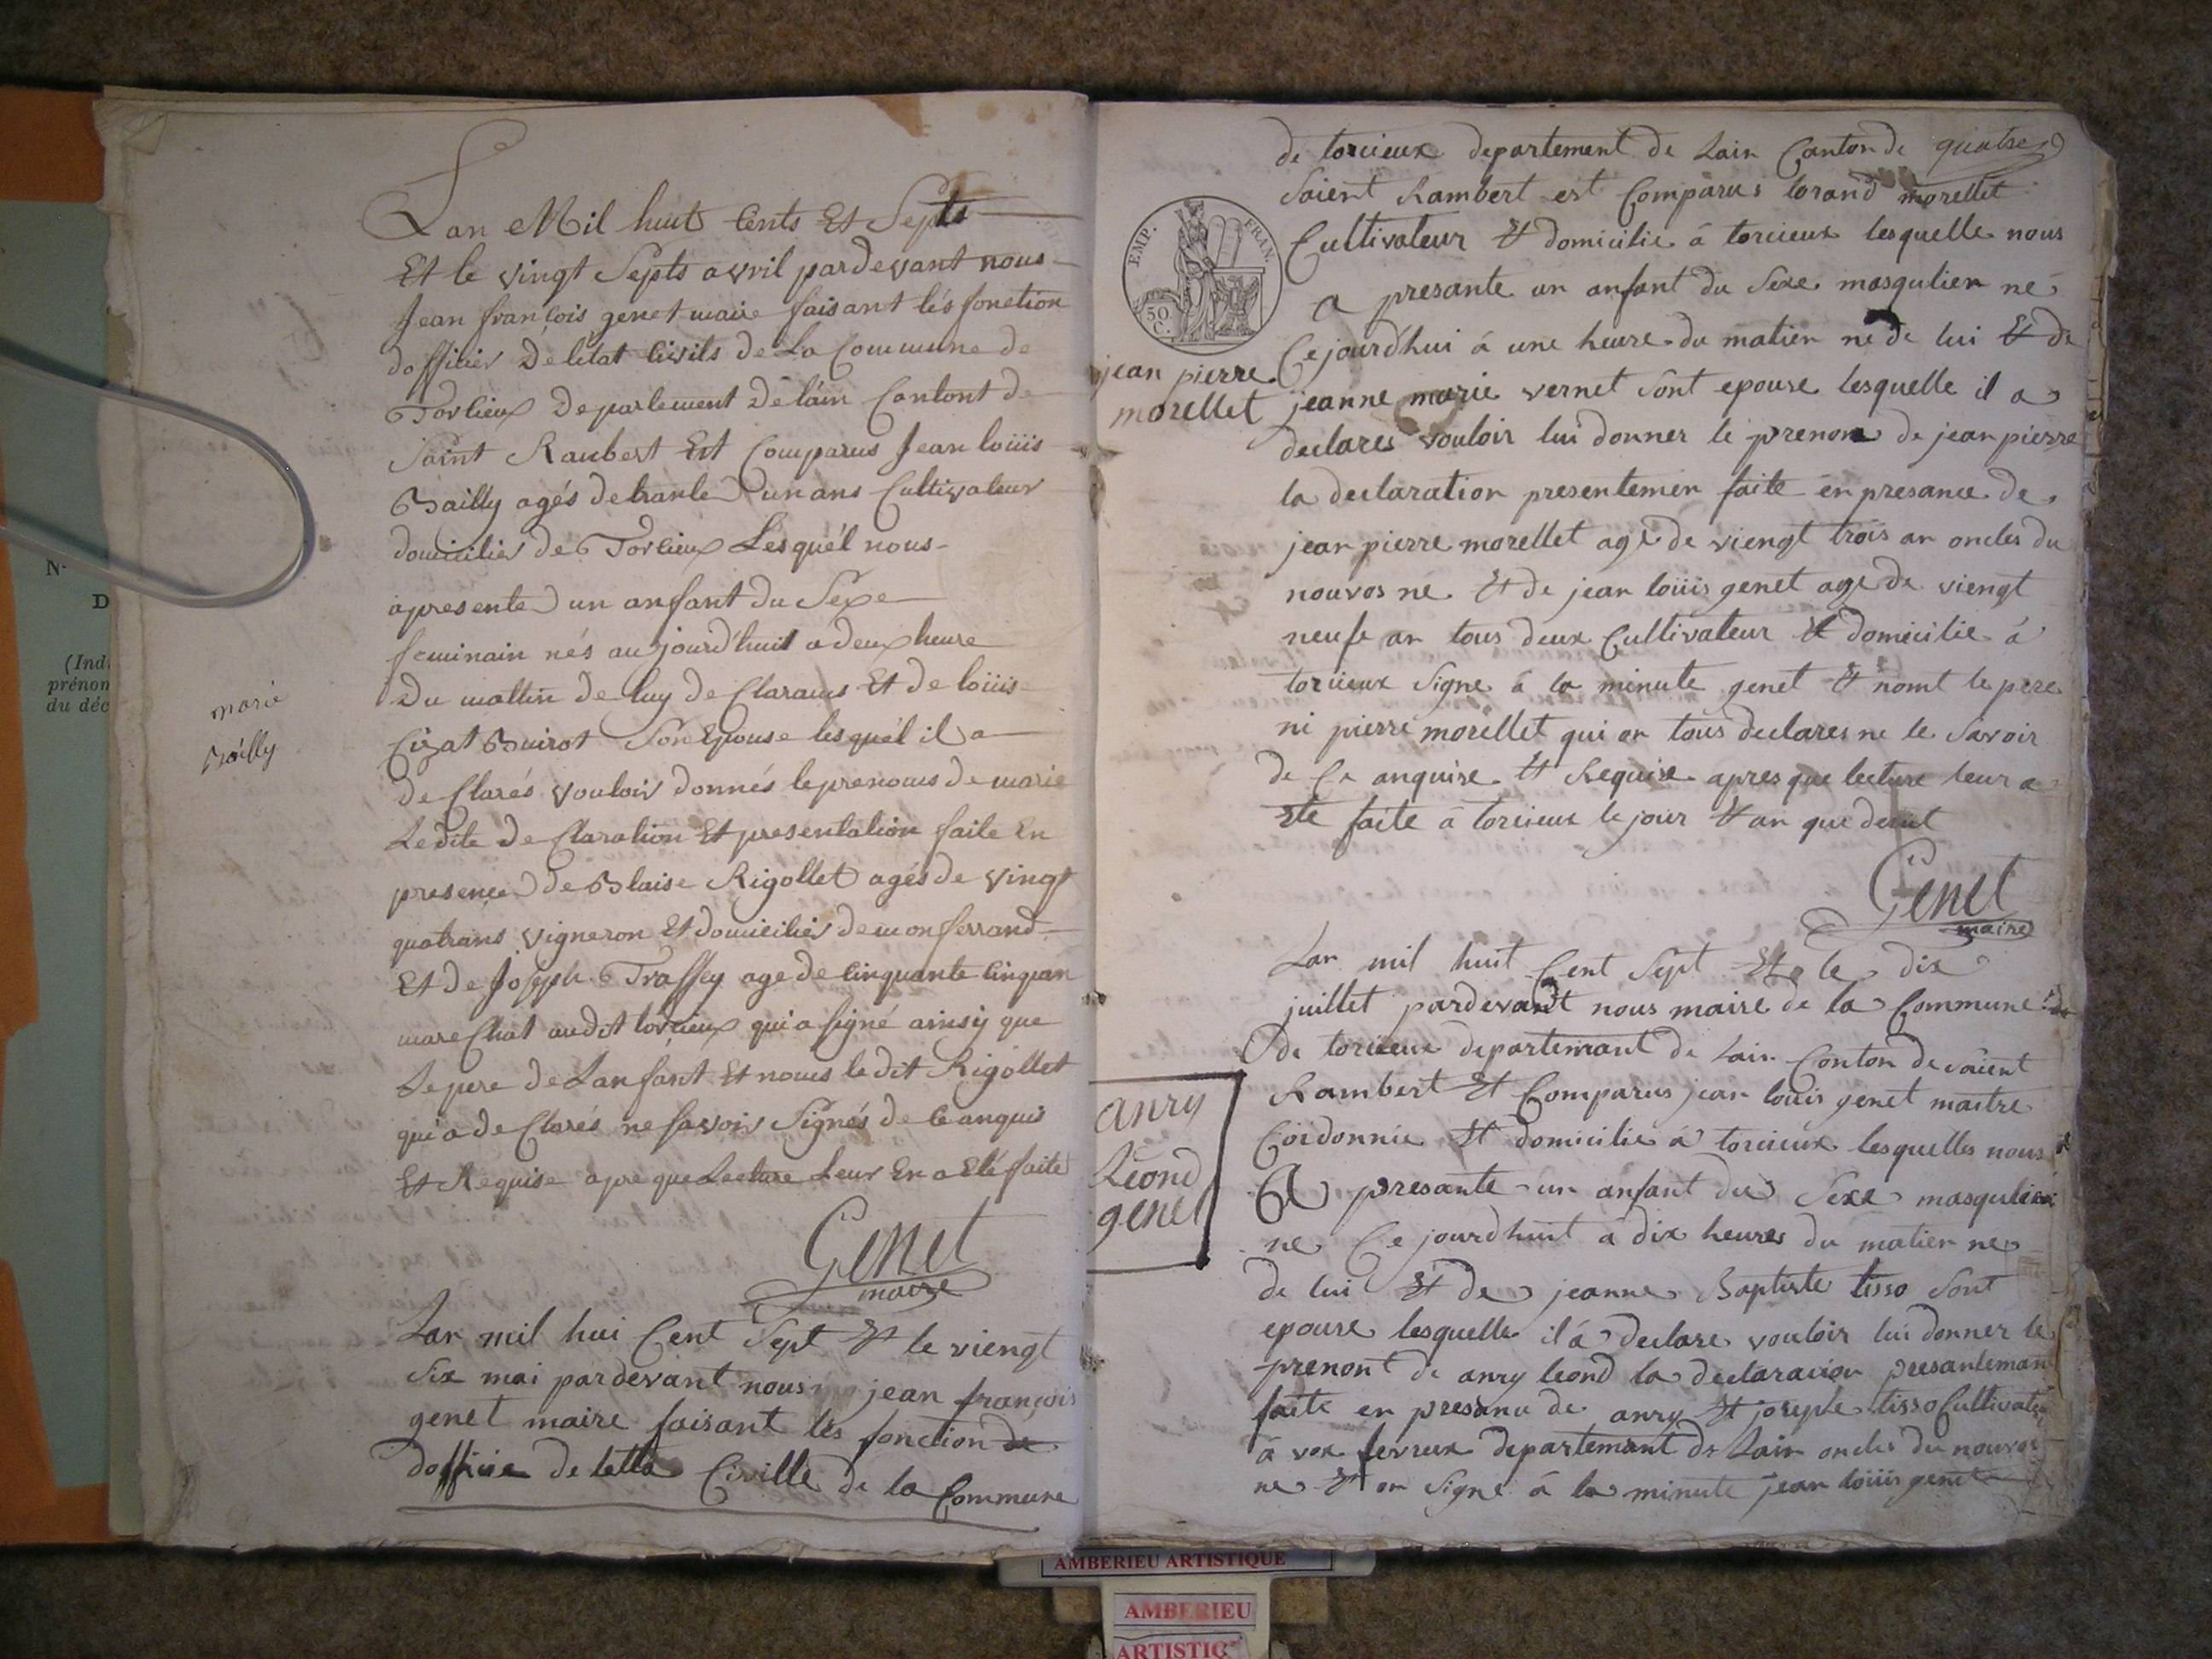 Lan Mil huit Cents Et Septs
Et le vingt Septs avril pardevant nous
Jean françois genet maire faisant lés fonction
doffitier De létat Civils de La Commune de
Torcieux Departement De láin Cantont de
Saint Rambert Est Comparus Jean loüis
Bailly agés de trante un ans Cultivateur
domicilier de Torcieux Lesquél nous
apresente un anfant du Sexe
feminain nés aujourd'huit a deux heure
Du mattin de luy de Clarans Et de loüis
Cizat Buirot Son Epouse lesquél il a
de Clarés vouloir donnés le prenoms de marie
Ledite de Claration Et presentation faite En
presence de Blaise Rigollet agés de vingt
quatrans vigneron Et domicilier de monferrand
Et de Joseph Traffey age de Cinquante Cinquan
mareChat audit torcieux qui a signé ainsÿ que
Le pere de Lanfant Et nous le dit Rigollet
qui a de Clarés ne savoir Signés de Ce anquis
Et Requise apre que Lecture Leur En a Eté faite
Genet
maire
marie
Bailly
Lan mil hui Cent Sept Et le viengt
Six mai pardevant nous jean françois
genet maire faisant lés fonction de
doffisie de letta Civille de la Commune
quatre
de torcieux departement de Lain Canton de
Saient Rambert est Comparus lorand morellet
Cultivateur Et domicilie à torcieux lesquelle nous
a presante un anfant du Sexe masqulien né
Ce jourd'hui á une heure du matien né de lui Et de
jeanne marie vernet Sont epouse lesquelle il a
declares vouloir lui donner le prenom de jean pierre
la declaration presentemen faite én presance de
jean pierre morellet agé de viengt trois an oncles du
nouvos né Et de jean loüis genet age de viengt
neufe an tous deux Cultivateur Et domicilie á
torcieux Signe á la minute genet Et nomt le pere
ni pierre morellet qui on tous declares ne le Savoir
de Ce anquise Et Requise apres que lecture leur a
Ete faite á torcieux le jour Et an que desut
Genet
maire
EMP. FRAN.
50 C.
jean pierre
morellet
Lan mil huit Cent Sept Et le dix
juillet pardevant nous maire de la Commune
de torcieux departemant de Lain Conton de saient
Rambert Et Comparus jean louis genet maitre
Cordonnie Et domicilie á torcieux lesquelles nous
A presante un anfant du Sexe masqulien
ne Ce jourdhuit á dix heures du matien ne
de lui Et de jeanne Baptiste tisso Sont
epouse lesquelle il á declare vouloir lui donner le
prenont de anry leond la declaraion presantemant
faite en presanu de anry Et joseple tisso Cultivate
á vox fevreux departemant de Lain oncles du nouvos
ne Et on Signe á la minute jean loüis genet
anry
Léond
genet
N
D
(Ind
prénon
du déc
AMBERIEU ARTISTIQUE
AMBERIEU
ARTISTIQ